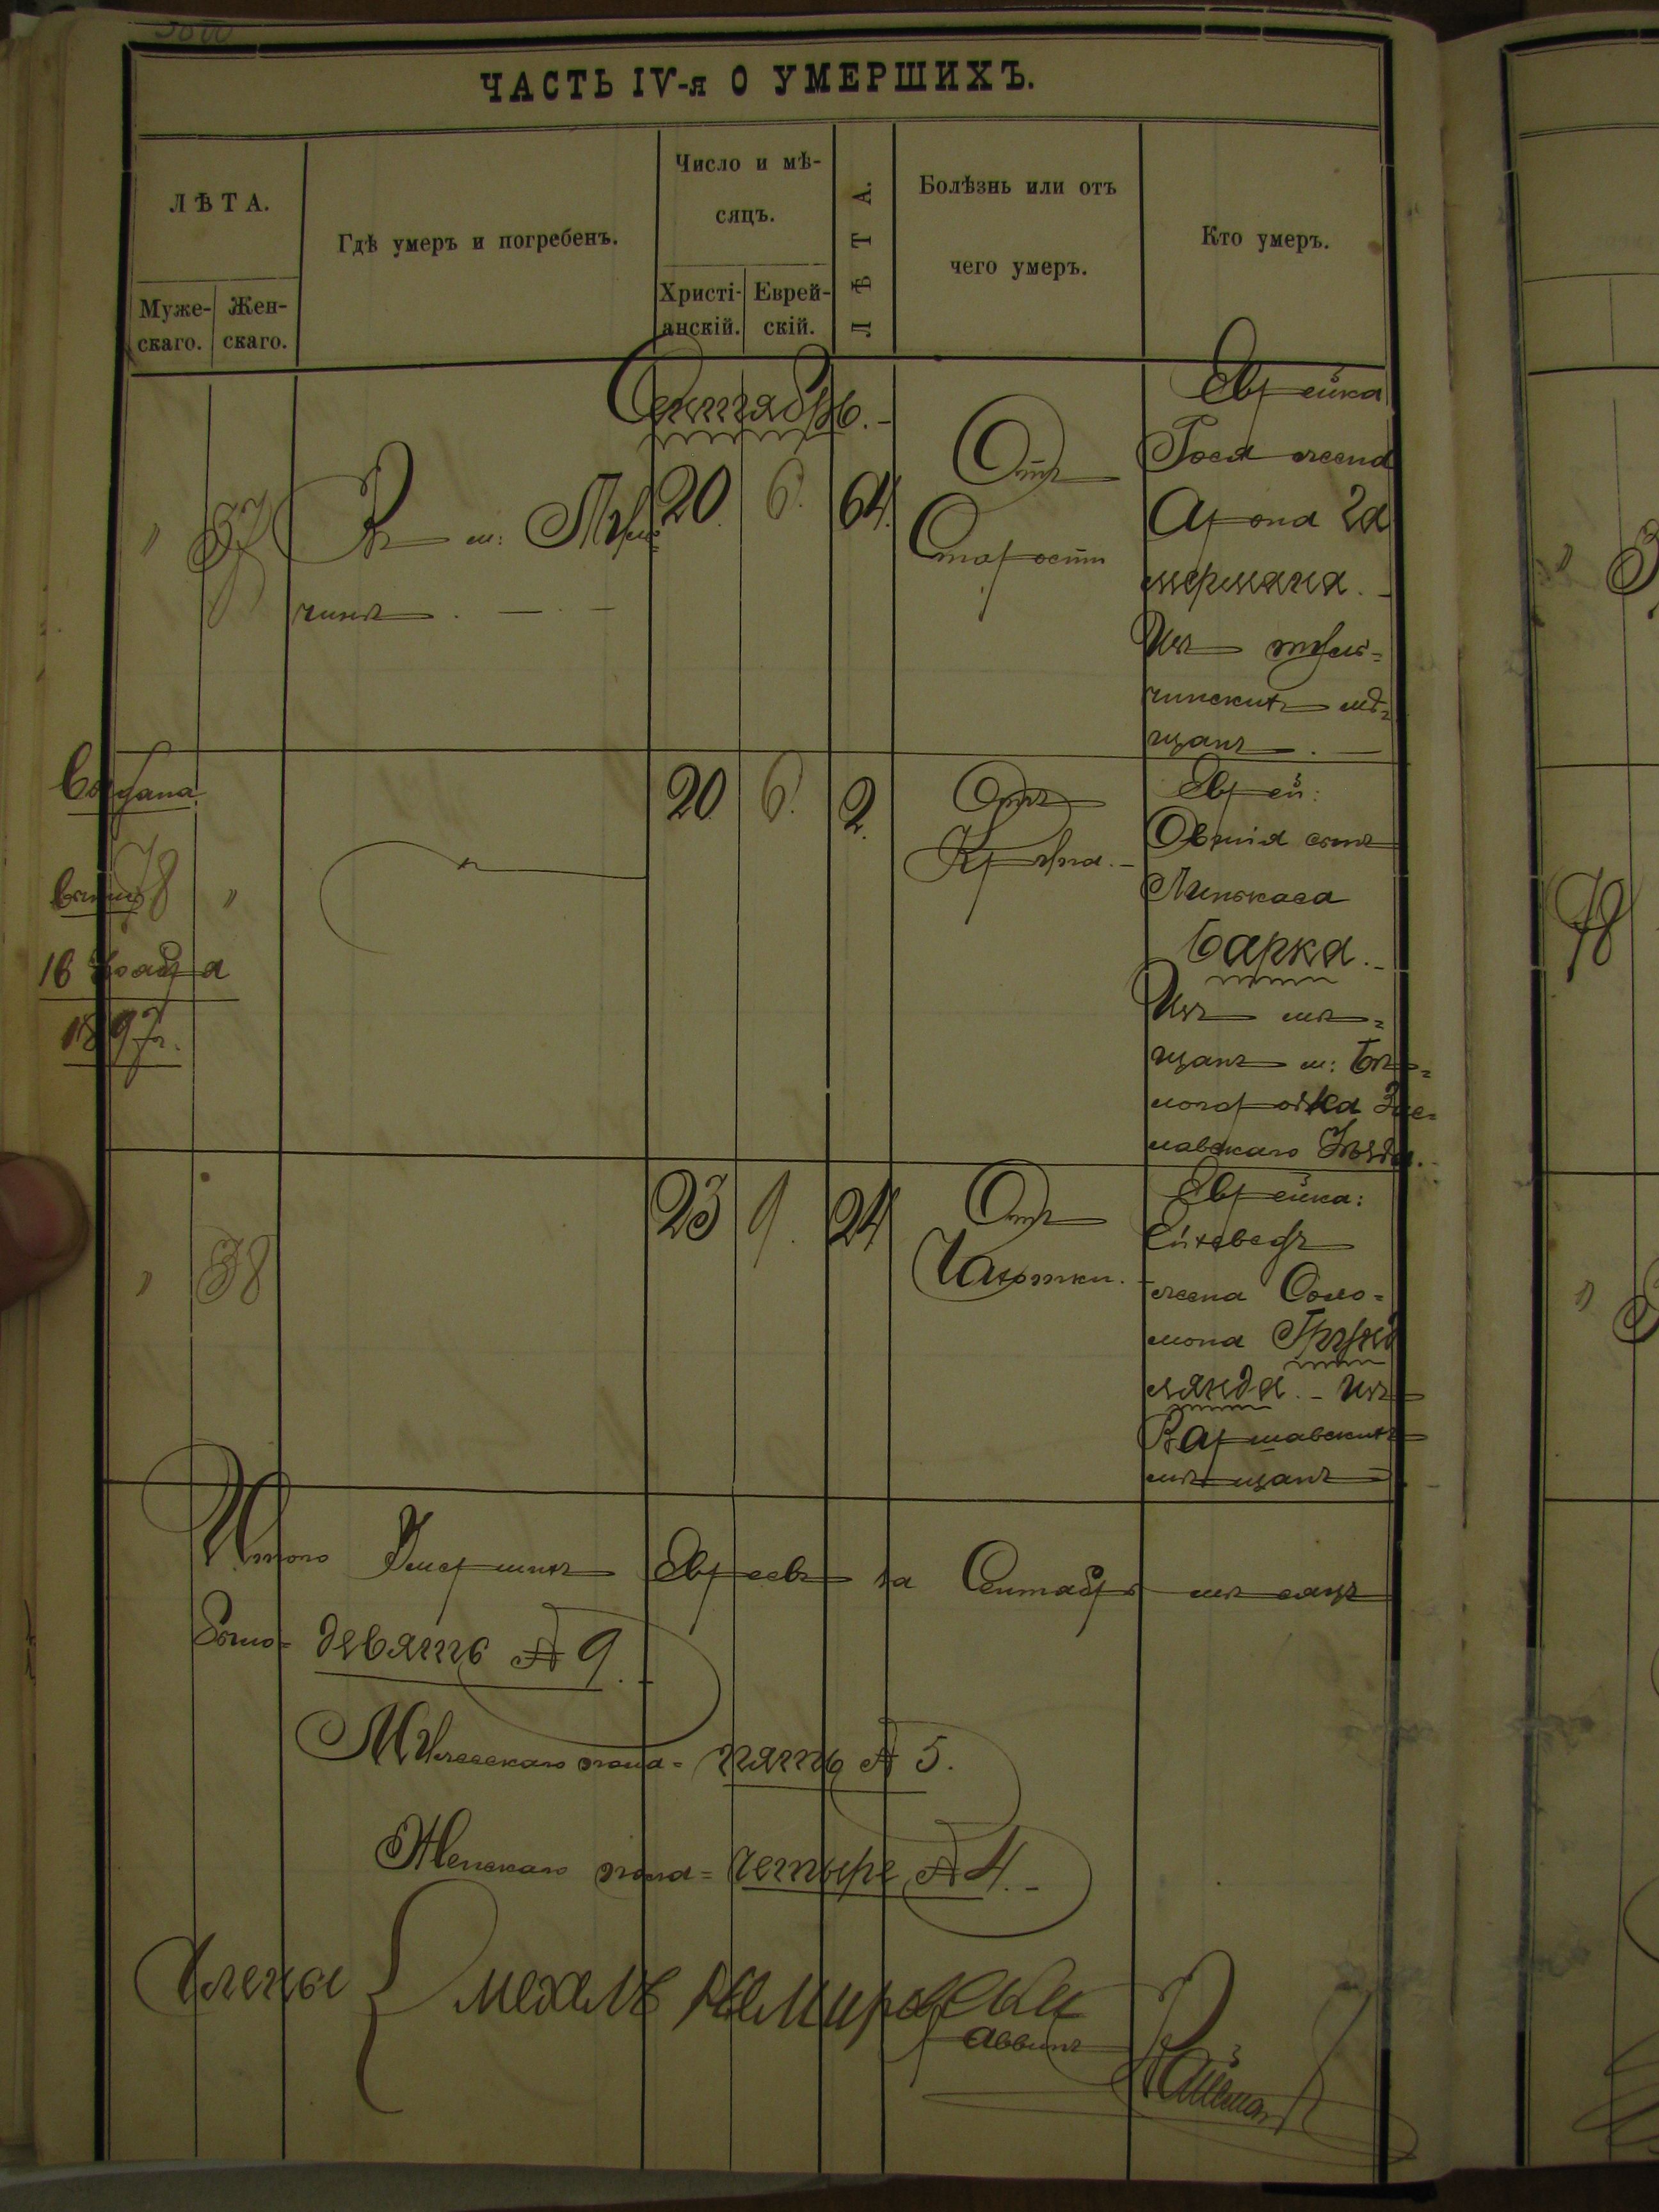 ЧАСТЬ IV-я О УМЕРШИХЪ.
ЛѢТА.
Муже-
скаго.
Жен-
скаго.
Гдѣ умеръ и погребенъ.
Число и мѣ-
сяцъ.
Христі-
анскій.
Еврей-
скій.
ЛѢТА.
Болѣзнь или отъ
чего умеръ.
Кто умеръ.
Сентябрь.
"
37
Въ м:
чинѣ.
20.
6.
64.
Отъ
Старости
Еврейка
жена
Арона За
мермана.
Изъ
чинскихъ мѣ-
щанъ.
16 Ноября
1897 г.
78
"
20
6.
2.
Отъ
Крупа.
Еврей:
Овшія сынъ
Пинькаса
Барка.
Изъ мѣ-
щанъ м: Бѣ-
логородка Зас-
лавскаго Уѣзда.
"
38
23
9.
24
Отъ
Чахотки.
Еврейка:
жена Соло-
мона
лянда. - Изъ
Варшавскихъ
мѣщанъ
Итого Умершихъ Евреевъ за Сентябрь мѣсяцъ
было- девять № 9.
Мужескаго пола- пять № 5.
Женскаго пола= четыре № 4.
Члены
Раввинъ